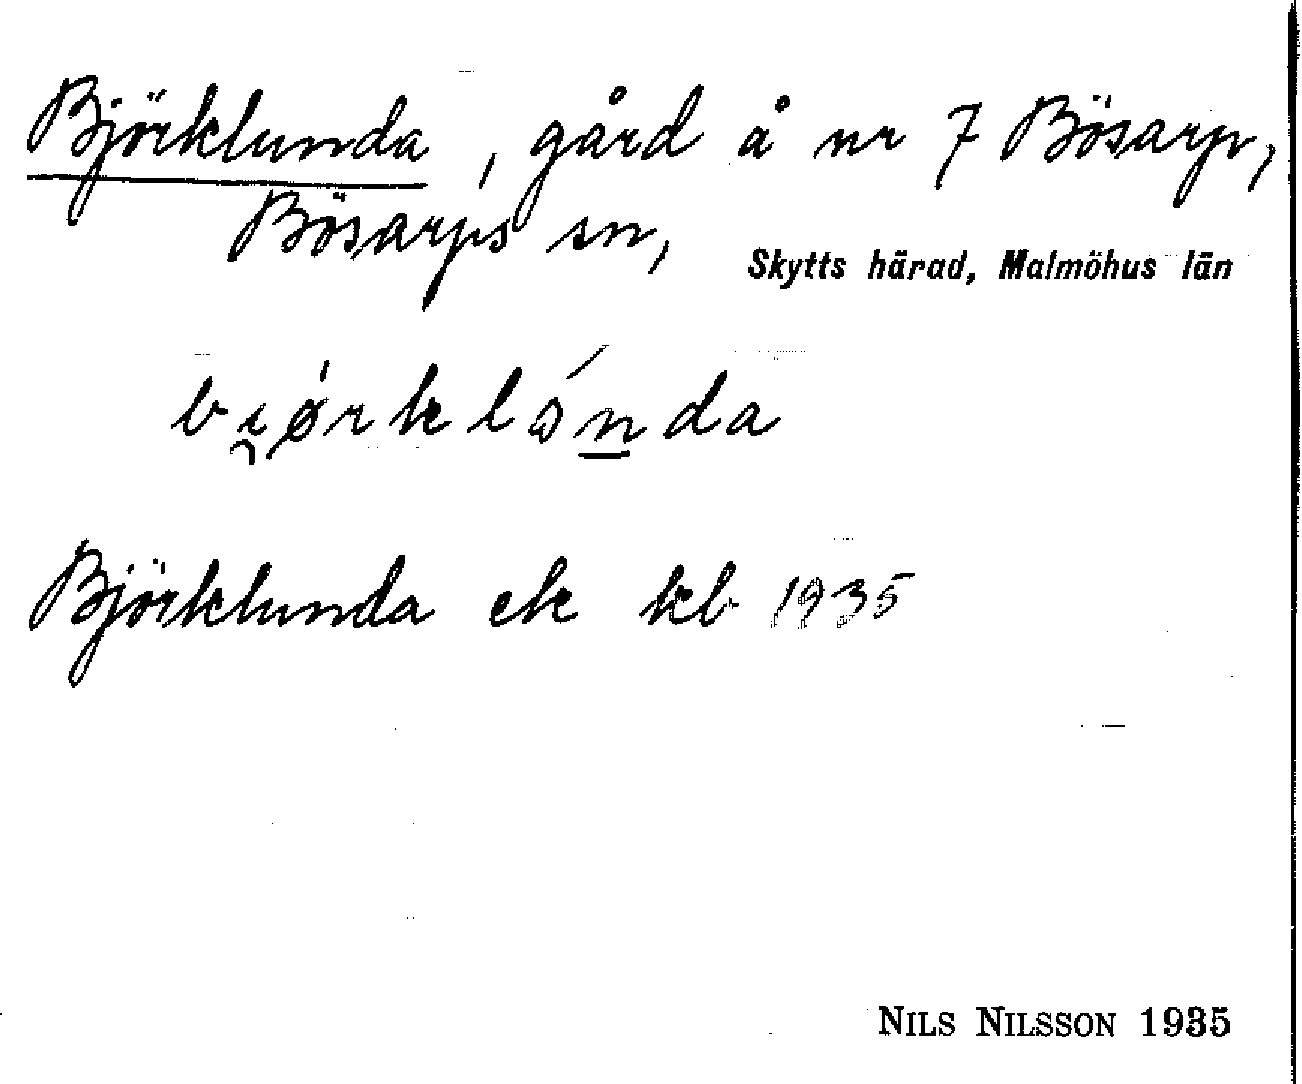 Björklunda, gård å nr 7 Bösarp,
Bösarps sn, Skytts härad, Malmöhus län
bi̯ø̍rklón̲da
Björklunda ek kb 1935
NILS NILSSON 1935